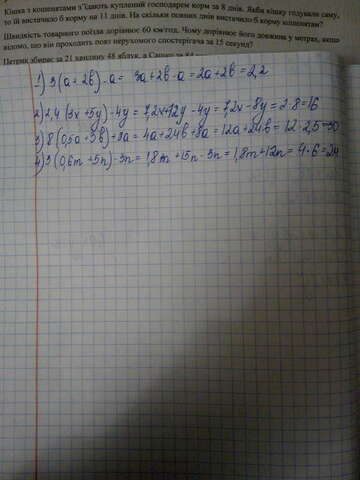 Кішка з кошенятами з'їдають куплений господарем корм за 8 днів. Якби кішку годували саму,
то їй вистачило б корму на 11 днів. На скільки повних днів вистачило б корму кошенятам?
Швидкість товарного поїзда дорівнює 60 км/год. Чому дорівнює його довжина у метрах, якщо
відомо, що він проходить повз нерухомого спостерігача за 15 секунд?
Петрик збирає за 21 хвилину 48 яблук, а
1) 3(a+2b)-a= 3a+2b-a=2a+2b=2,2
2) 2,4(3x+5y)-4y=7,2x+12y-4y=7,2x-8y=2·8=16
3) 8(0,5a+3b)+8a=4a+24b+8a=12a+24b=12·2,5=30
4) 3(0,6m+5n)-3n=1,8m+15n-3n=1,8m+12n=4·6=24